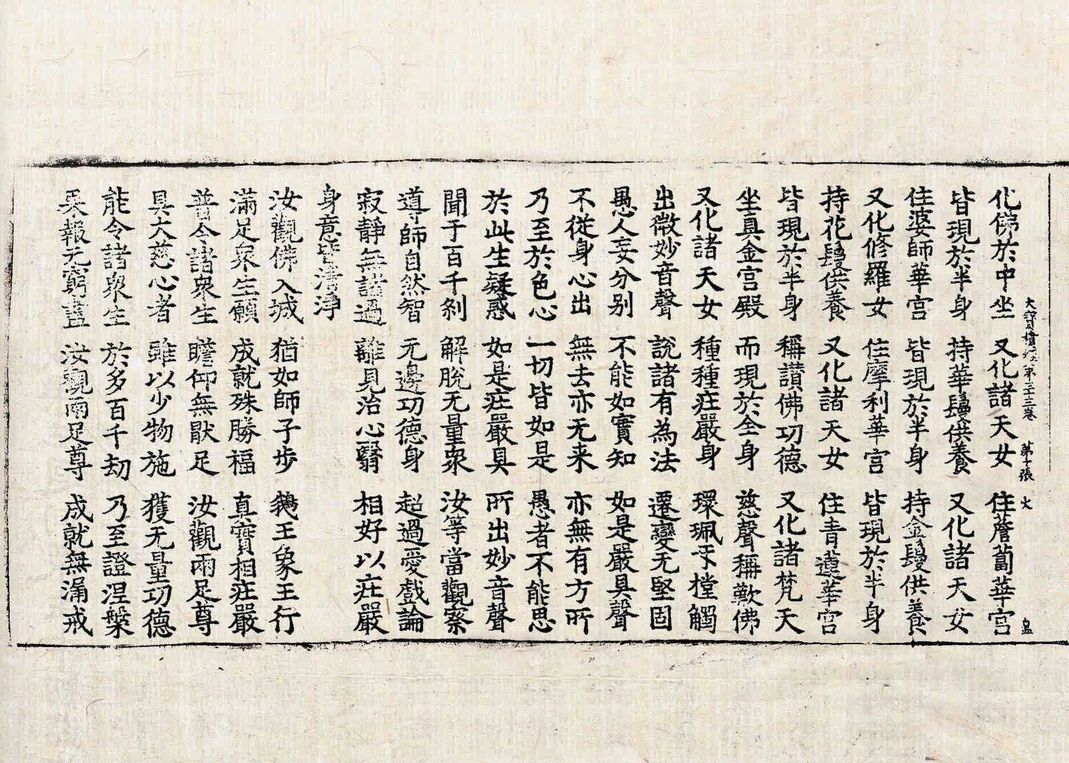 大寶積經第三十三卷 第十張 火
化佛於中坐 又化諸天女 住薝蔔華宮
皆現於半身 持華鬘供養 又化諸天女
住婆師華宮 皆現於半身 持金鬘供養
又化修羅女 住摩利華宮 皆現於半身
持花鬘供養 又化諸天女 住青蓮華宮
皆現於半身 稱讃佛功德 又化諸梵天
坐真金宮殿 而現於全身 慈聲稱歎佛
又化諸天女 種種莊嚴身 環珮互摚觸
出微妙音聲 說諸有為法 遷變无堅固
愚人妄分別 不能如實知 如是嚴具聲
不從身心出 無去亦无来 亦無有方所
乃至於色心 一切皆如是 愚者不能思
於此生疑惑 如是莊嚴具 所出妙音聲
聞于百千剎 解脫无量眾 汝等當觀察
導師自然智 无邊功德身 超過愛戲論
寂靜無諸過 離見治心翳 相好以莊嚴
身意皆清淨
汝觀佛入城 猶如師子步 鵝王象王行
滿足眾生願 成就殊勝福 真寶相莊嚴
普令諸眾生 瞻仰無猒足 汝觀兩足尊
具大慈心者 雖以少物施 獲无量功德
能令諸眾生 於多百千劫 乃至證涅槃
果報无窮盡 汝觀兩足尊 成就無漏戒